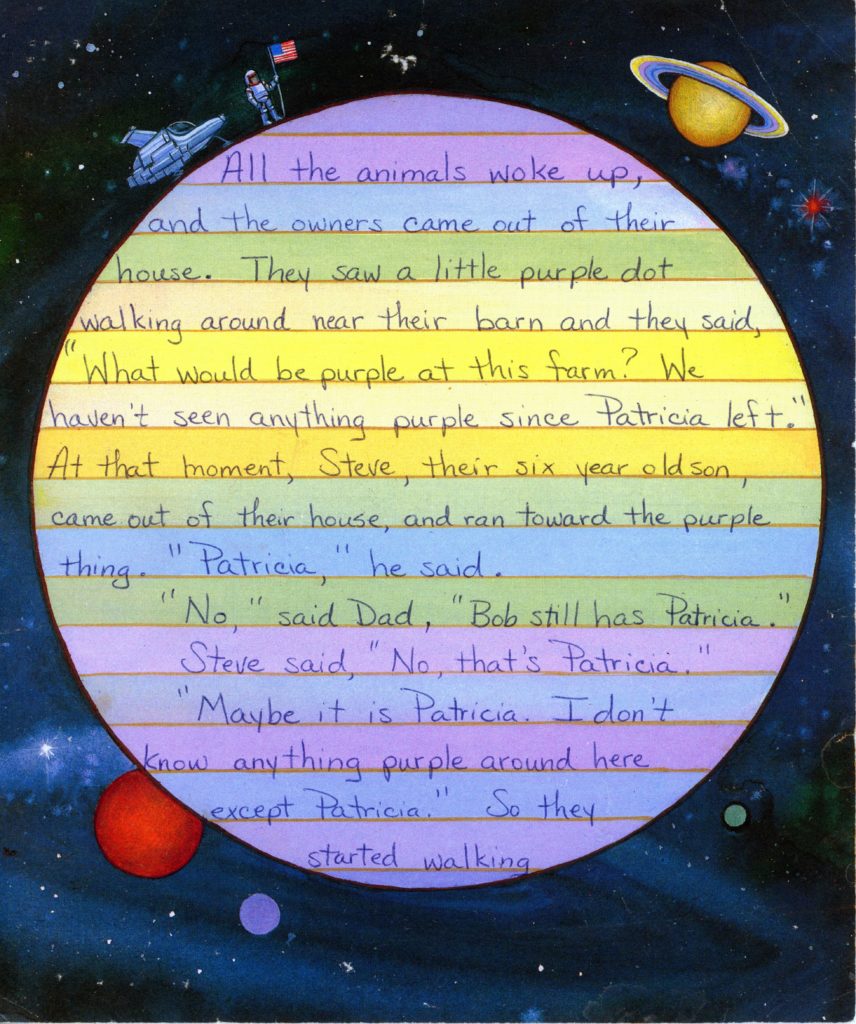 All the animals woke up,
and the owners came out of their
house. They saw a little purple dot
walking around near their barn and they said,
"What would be purple at this farm? We
haven't seen anything purple since Patricia left."
At that moment, Steve, their six year old son,
came out of their house, and ran toward the purple
thing. "Patricia," he said.
"No," said Dad, "Bob still has Patricia."
Steve said, "No, that's Patricia."
"Maybe it is Patricia. I don't
know anything purple around here
except Patricia." So they
started walking